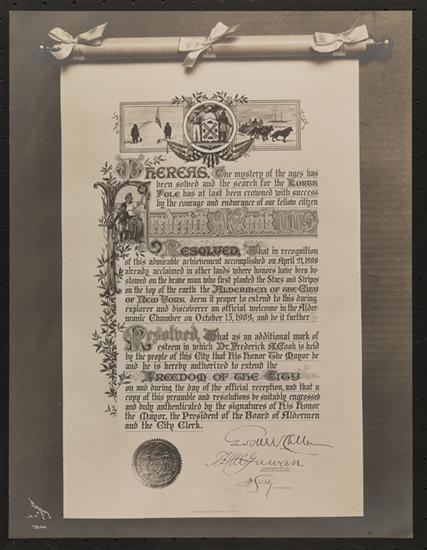 WHEREAS, The mystery of the ages has
been solved and the search for the NORTH
POLE has at last been crowned with success
by the courage and endurance of our fellow citizen
Frederick A. Cook
RESOLVED, That in recognition
of this admirable achievement accomplished on April 21, 1908
already acclaimed in other lands where honors have been be-
stowed on the brave man who first planted the Stars and Stripes
on the top of the earth the ALDERMEN OF THE CITY
OF NEW YORK deem it proper to extend to this daring
explorer and discoverer an official welcome in the Alder-
manic Chamber on October 15, 1909; and be it further
Resolved, That as an additional mark of
esteem in which Dr. Frederick A. Cook is held
by the people of this City that His Honor The Mayor be
and he is hereby authorized to extend the
FREEDOM OF THE CITY
on and during the day of the official reception, and that a
copy of this preamble and resolutions be suitably engrossed
and duly authenticated by the signatures of His Honor
the Mayor, the President of the Board of Aldermen
and the City Clerk.